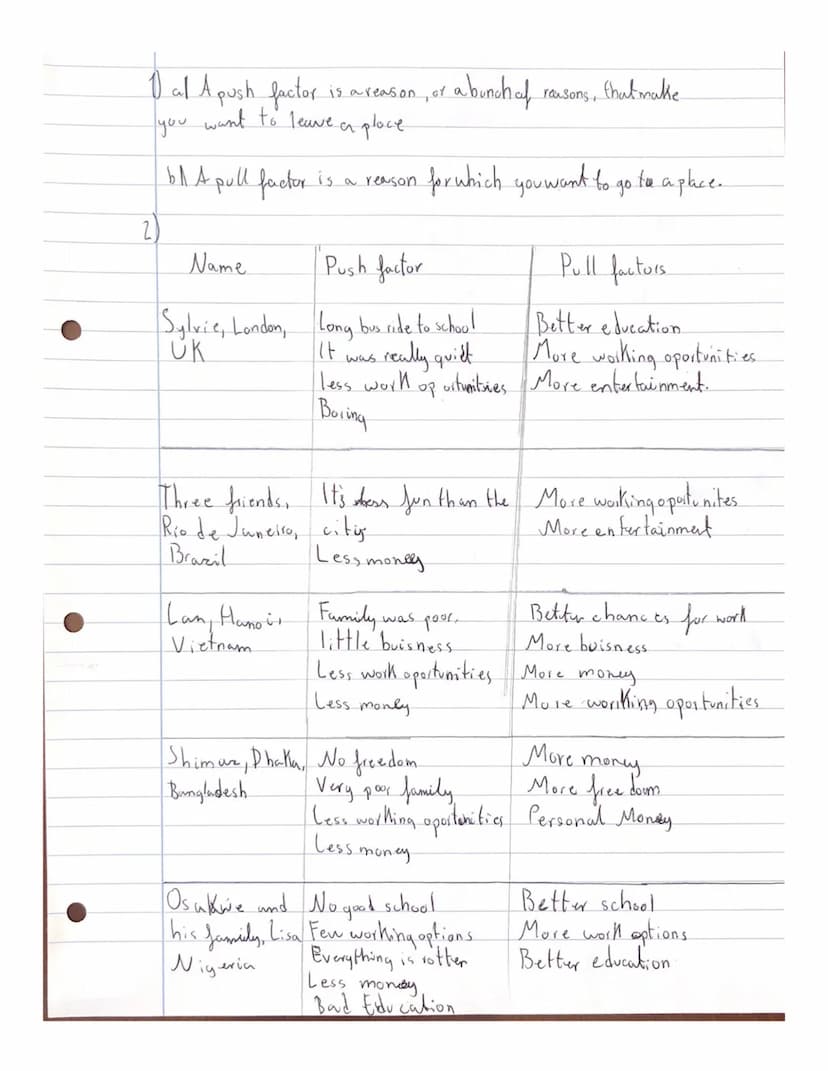 1) a) A push factor is a reason, or a bunch of reasons, that make
you want to leave a place
b) A pull factor is a reason for which you want to go to a place.
2)
Name Push factor Pull factors
Sylvie, London, Long bus ride to school Better education
UK It was really quiet More working oportunities
less work oportunities More entertainment.
Boring
Three friends, It's less fun than the More working oportunites
Rio de Janeiro, city More entertainment
Brazil Less money
Lan, Hanoi, Family was poor, Better chances for work
Vietnam little buisness More buisness
Less work oportunities More money
Less money More working oportunities
Shimur, Dhaka, No freedom More money
Bangladesh Very poor family More freedom
Less working oportunities Personal Money
Less money
Osakwe and No good school Better school
his family, Lisa Few working options More work options
Nigeria Everything is rotten Better education
Less money
Bad Education